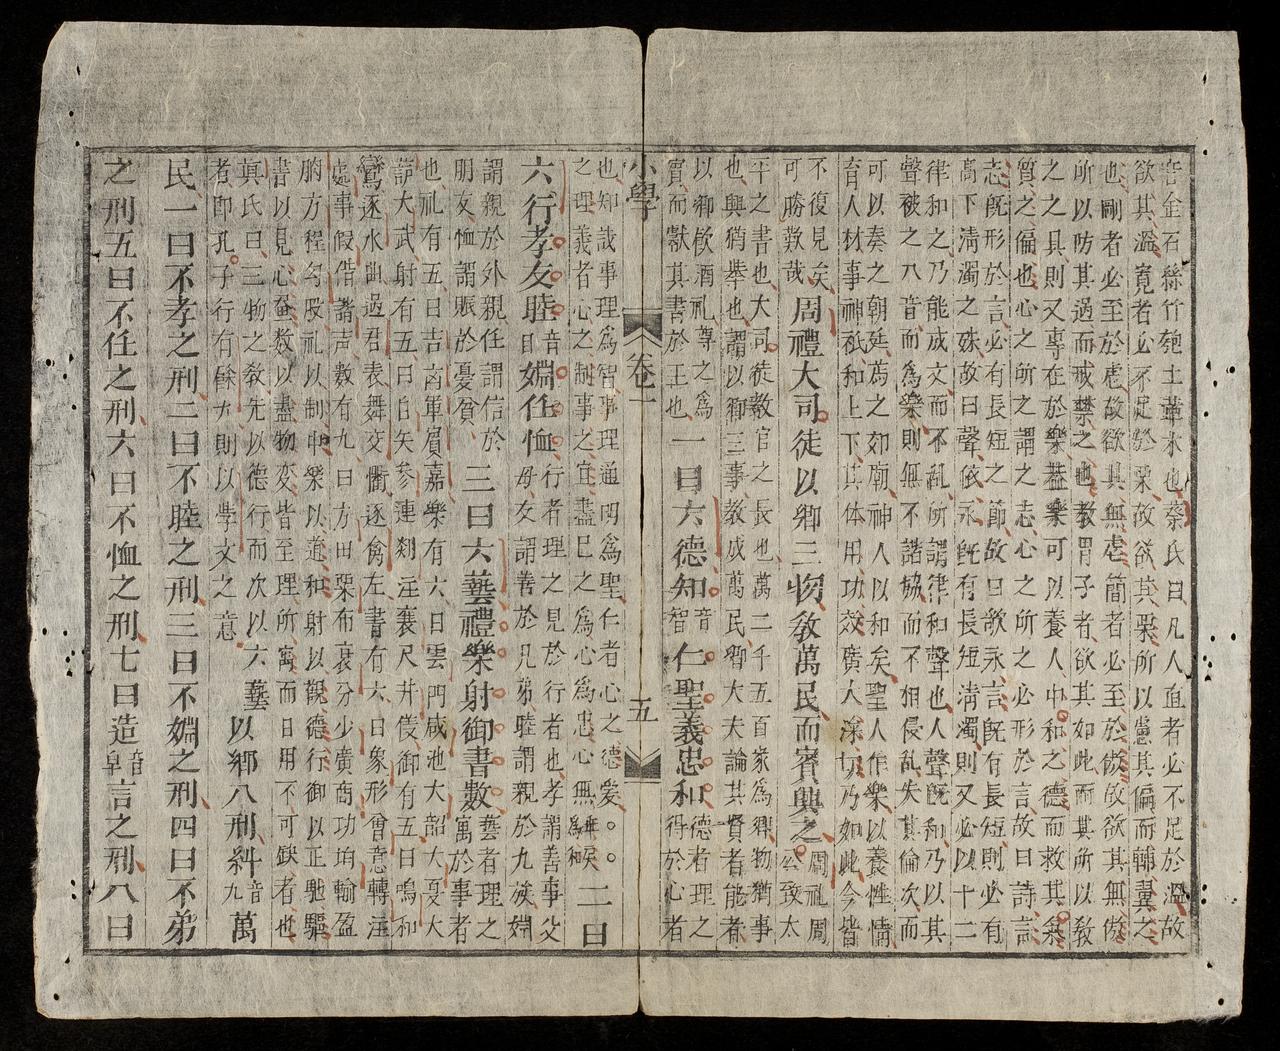 音金石絲竹匏土革木也蔡氏曰凡人直者必不足於溫故
欲其溫寬者必不足於栗故欲其栗所以慮其偏而輔翼之
也剛者必至於虐故欲其無虐簡者必至於傲故欲其無傲
所以防其過而戒禁之也教冑子者欲其如此而其所以敎
之之具則又專在於樂蓋樂可以養人中和之德而救其氣
質之偏也心之所之謂之志心之所之必形於言故曰詩言
志旣形於言必有長短之節故曰歌永言旣有長短則必有
高下淸濁之殊故曰聲依永旣有長短淸濁則又必以十二
律和之乃能成文而不乱所謂律和聲也人聲旣和乃以其
聲被之八音而爲樂則無不諧協而不相侵乱失其倫次而
可以奏之朝廷薦之郊廟神人以和矣聖人作樂以養性情
育人材事神祇和上下其体用功效廣大深切乃如此今皆
不復見矣
可勝歎哉
周禮大司徒以鄕三物敎萬民而賓興之
周礼周
公致太
平之書也大司徒敎官之長也萬二千五百家爲鄕物猶事
也興猶擧也謂以鄕三事敎成萬民鄕大夫論其賢者能者
以鄕飮酒礼尊之爲
賓而獻其書於王也
一曰六德知音智仁聖義忠和
德者理之
得於心者
小學 卷一 五
也知哉事理爲智事理通明爲聖仁者心之德愛
之理義者心之制事之宜盡己之爲心爲忠心無乖戾爲和
二曰
六行孝友睦音目婣任恤
行者理之見於行者也孝謂善事父
母友謂善於兄弟睦謂親於九族婣
謂親於外親任謂信於
朋友恤謂賑於憂貧
三曰六藝禮樂射御書數
藝者理之
寓於事者
也礼有五曰吉凶軍賓嘉樂有六曰雲門咸池大韶大夏大
濩大武射有五曰白矢參連剡注襄尺井儀御有五曰鳴和
鸞逐水曲過君表舞交衢逐禽左書有六曰象形會意轉注
處事假借諧声數有九曰方田粟布衰分少廣商功均輸盈
朒方程勾股礼以制中樂以道和射以觀德行御以正馳驅
書以見心畫數以盡物変皆至理所寓而日用不可缺者也
眞氏曰三物之敎先以德行而次以六藝
者卽孔子行有餘力則以學文之意
以鄕八刑糾音九萬
民一曰不孝之刑二曰不睦之刑三曰不婣之刑四曰不弟
之刑五曰不任之刑六曰不恤之刑七曰造言之刑八曰